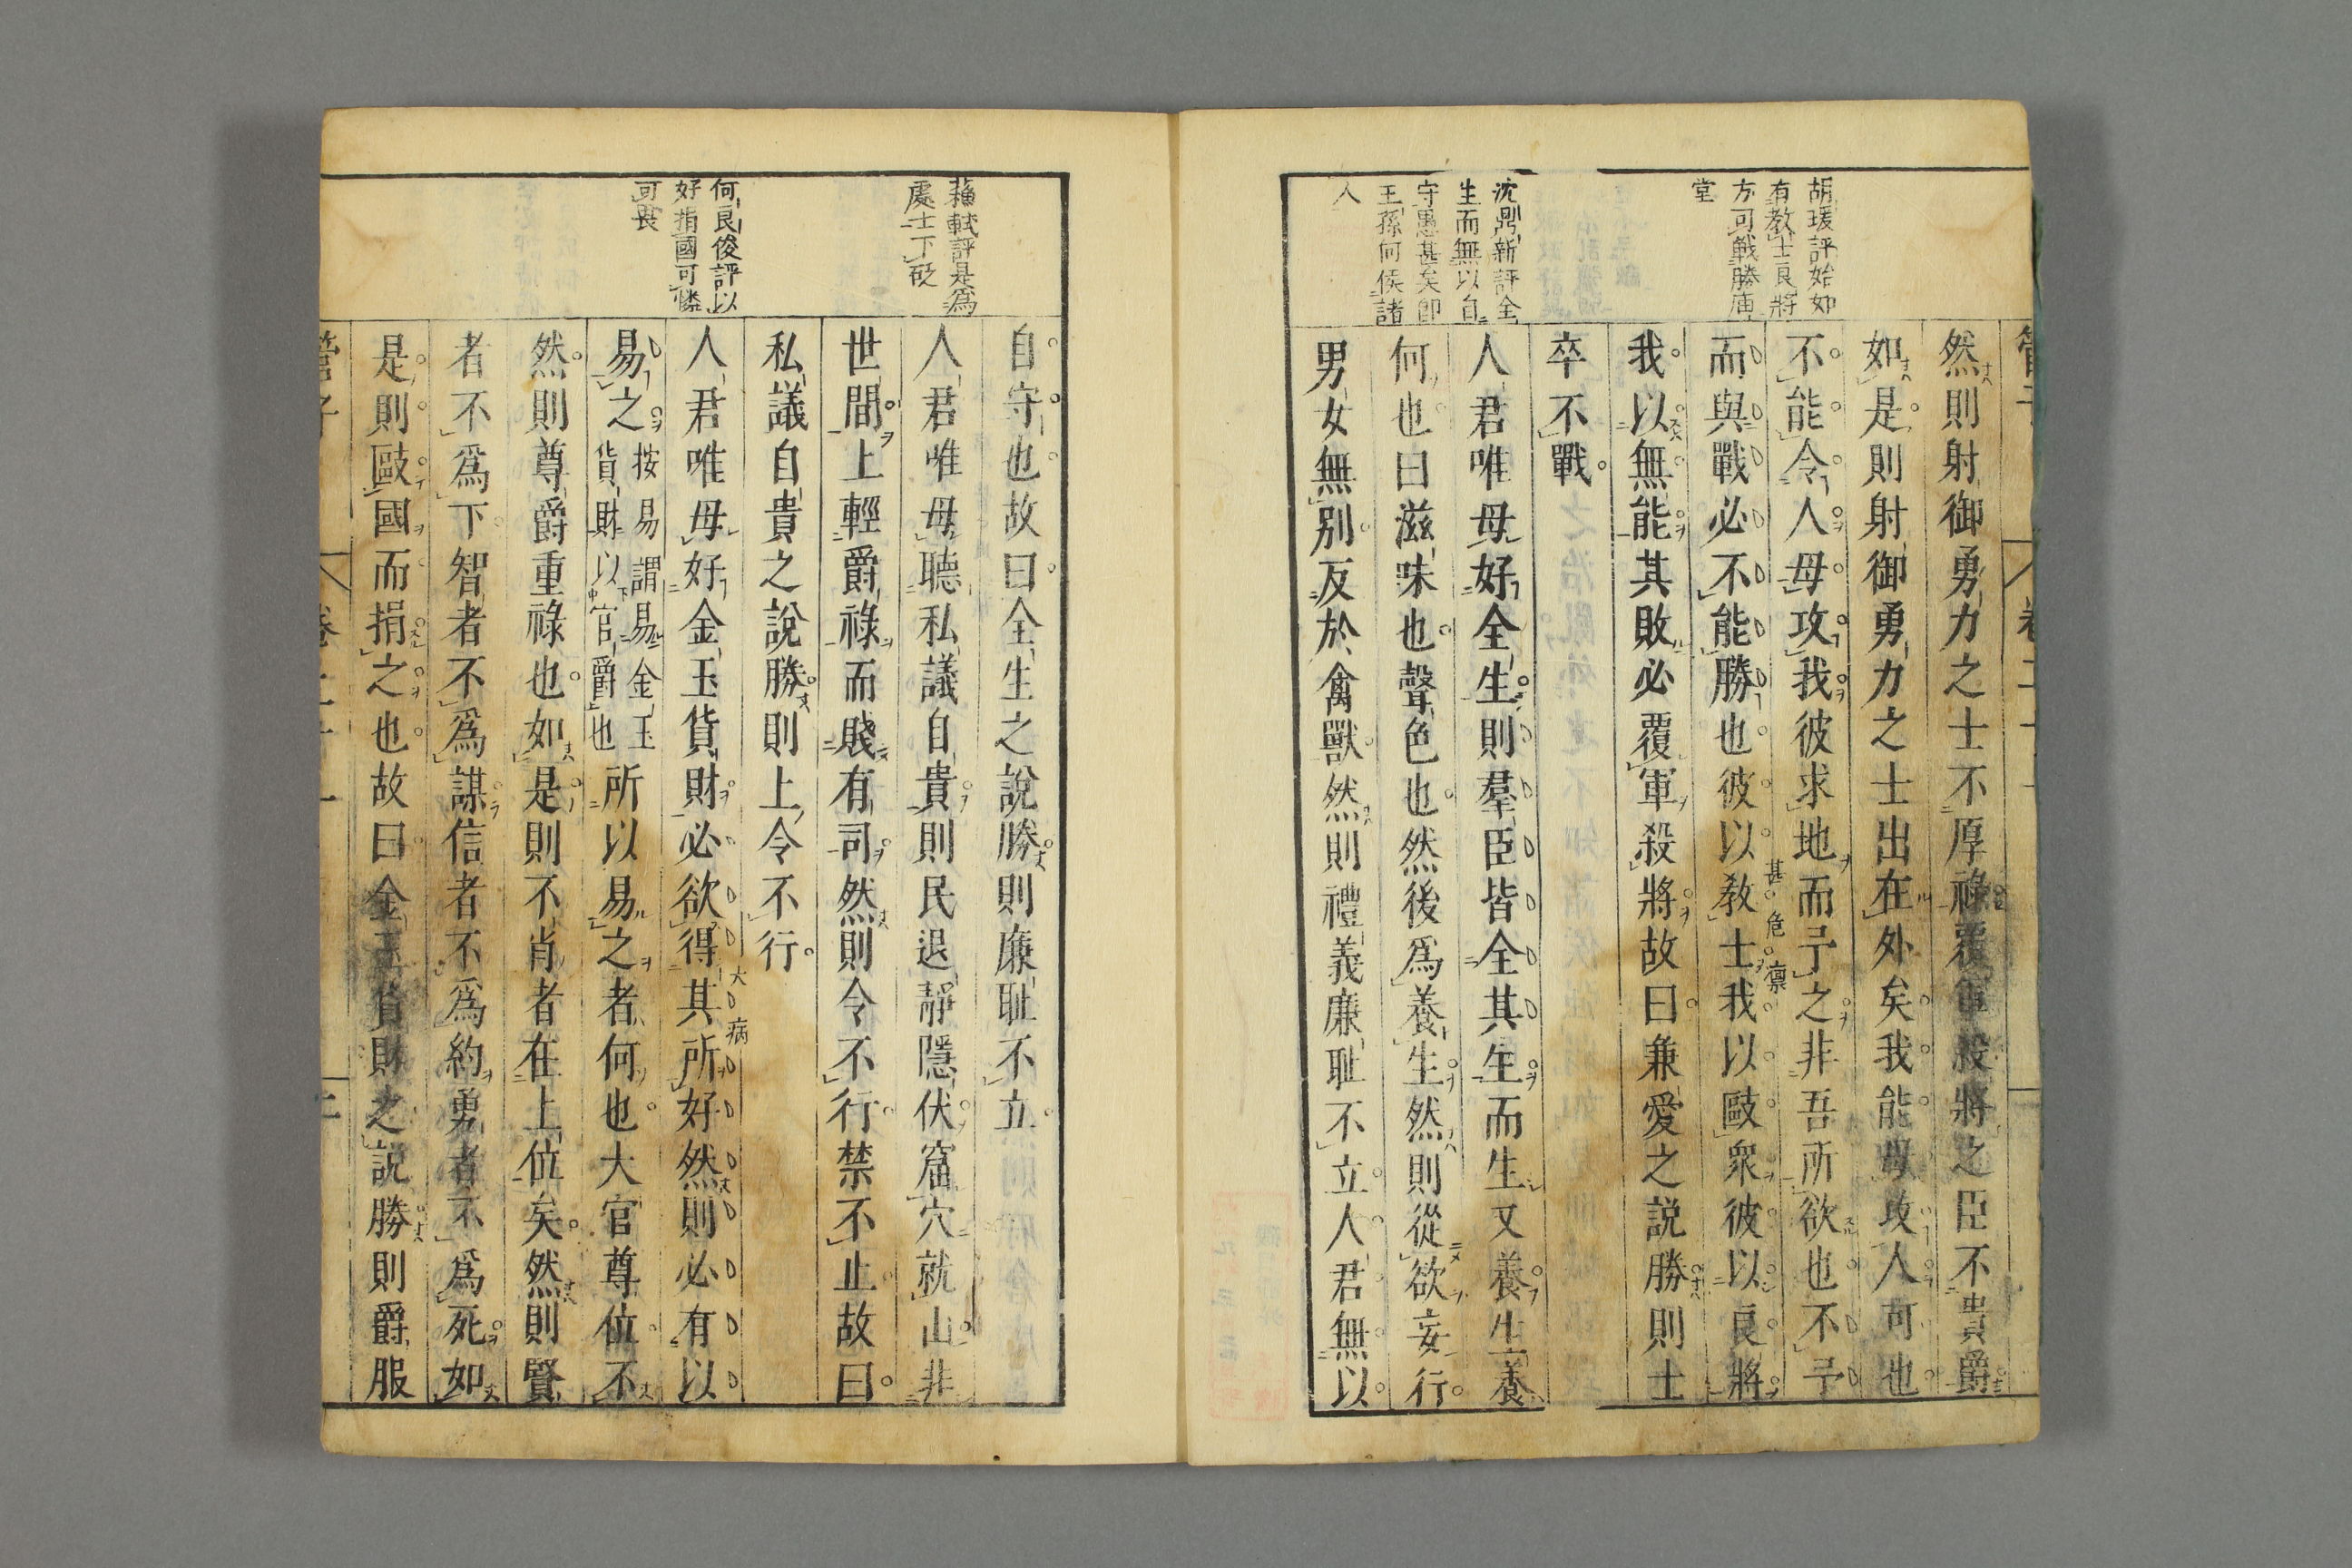 胡瑗評始如
有教士良將
方可戰勝庙
堂
沈鼎新評全
生而無以自
守愚甚矣卽
王孫何侯諸
人
然則射御勇力之士不厚祿覆軍殺將之臣不貴爵
如是則射御勇力之士出在外矣我能毋攻人可也
不能令人毋攻我彼求地而予之非吾所欲也不予
而與戰必不能勝也彼以教士我以敺衆彼以良將
甚危凛
我以無能其敗必覆軍殺將故曰兼愛之説勝則士
卒不戰
人君唯毋好全生則羣臣皆全其生而生又養生養
何也曰滋味也聲色也然後爲養生然則從欲妄行
男女無別反於禽獸然則禮義廉耻不立人君無以
蘇軾評是爲
處士下砭
何良俊評以
好捐國可憐
可畏
自守也故曰全生之說勝則廉耻不立
人君唯毋聽私議自貴則民退靜隱伏窟穴就山非
世間上輕爵祿而賤有司然則令不行禁不止故曰
私議自貴之說勝則上令不行
人君唯毋好金玉貨財必欲得其所好然則必有以
大病
易之按易謂易金玉貨財以官爵也所以易之者何也大官尊位不
然則尊爵重祿也如是則不肖者在上位矣然則賢
者不爲下智者不爲謀信者不爲約勇者不爲死如
是則敺國而捐之也故曰金玉貨財之説勝則爵服
管子